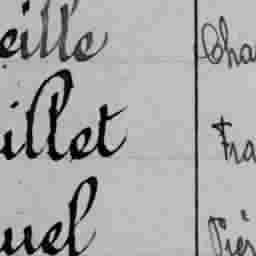 eille Cha
illet Fra
uel Pier